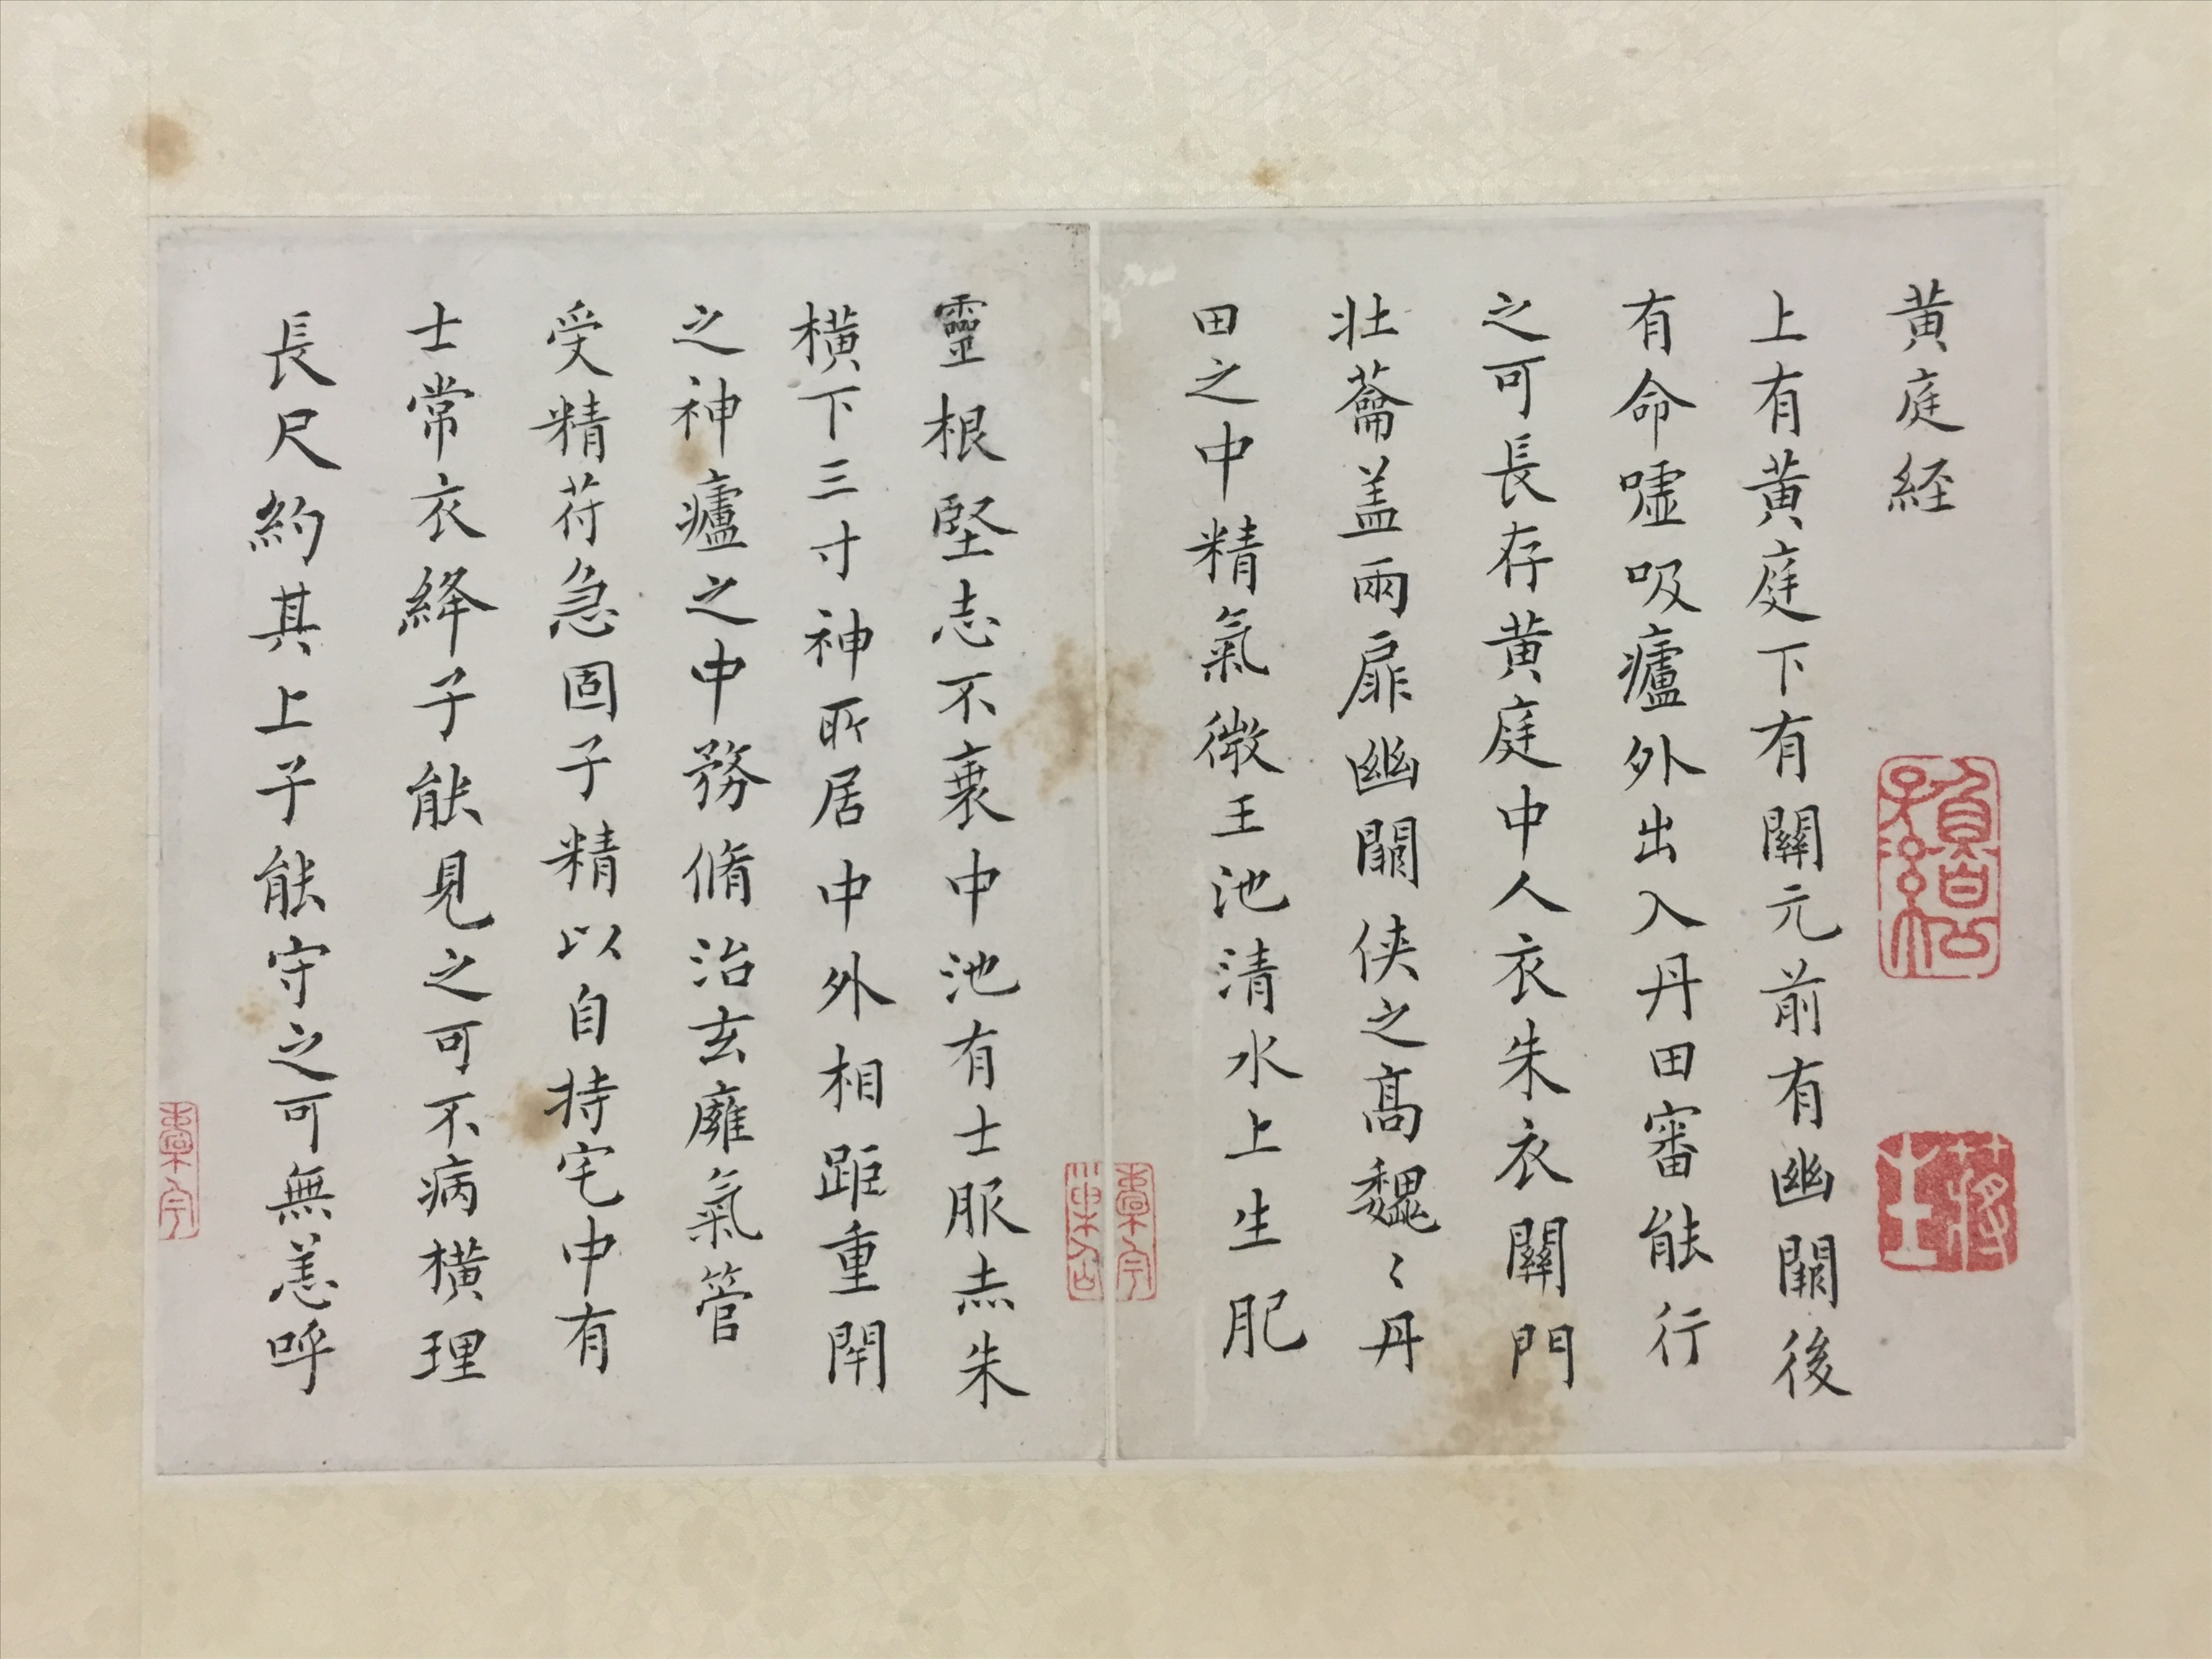 黄庭経
上有黄庭下有關元前有幽闕後
有命噓吸廬外出入丹田審能行
之可長存黄庭中人衣朱衣關門
壮蘥盖兩扉幽闕侠之高魏〻丹
田之中精氣微王池清水上生肥
靈根堅志不衰中池有士服赤朱
橫下三寸神所居中外相距重閇
之神廬之中務脩治玄廱氣管
受精苻急固子精以自持宅中有
士常衣絳子能見之可不病橫理
長尺約其上子能守之可無恙呼